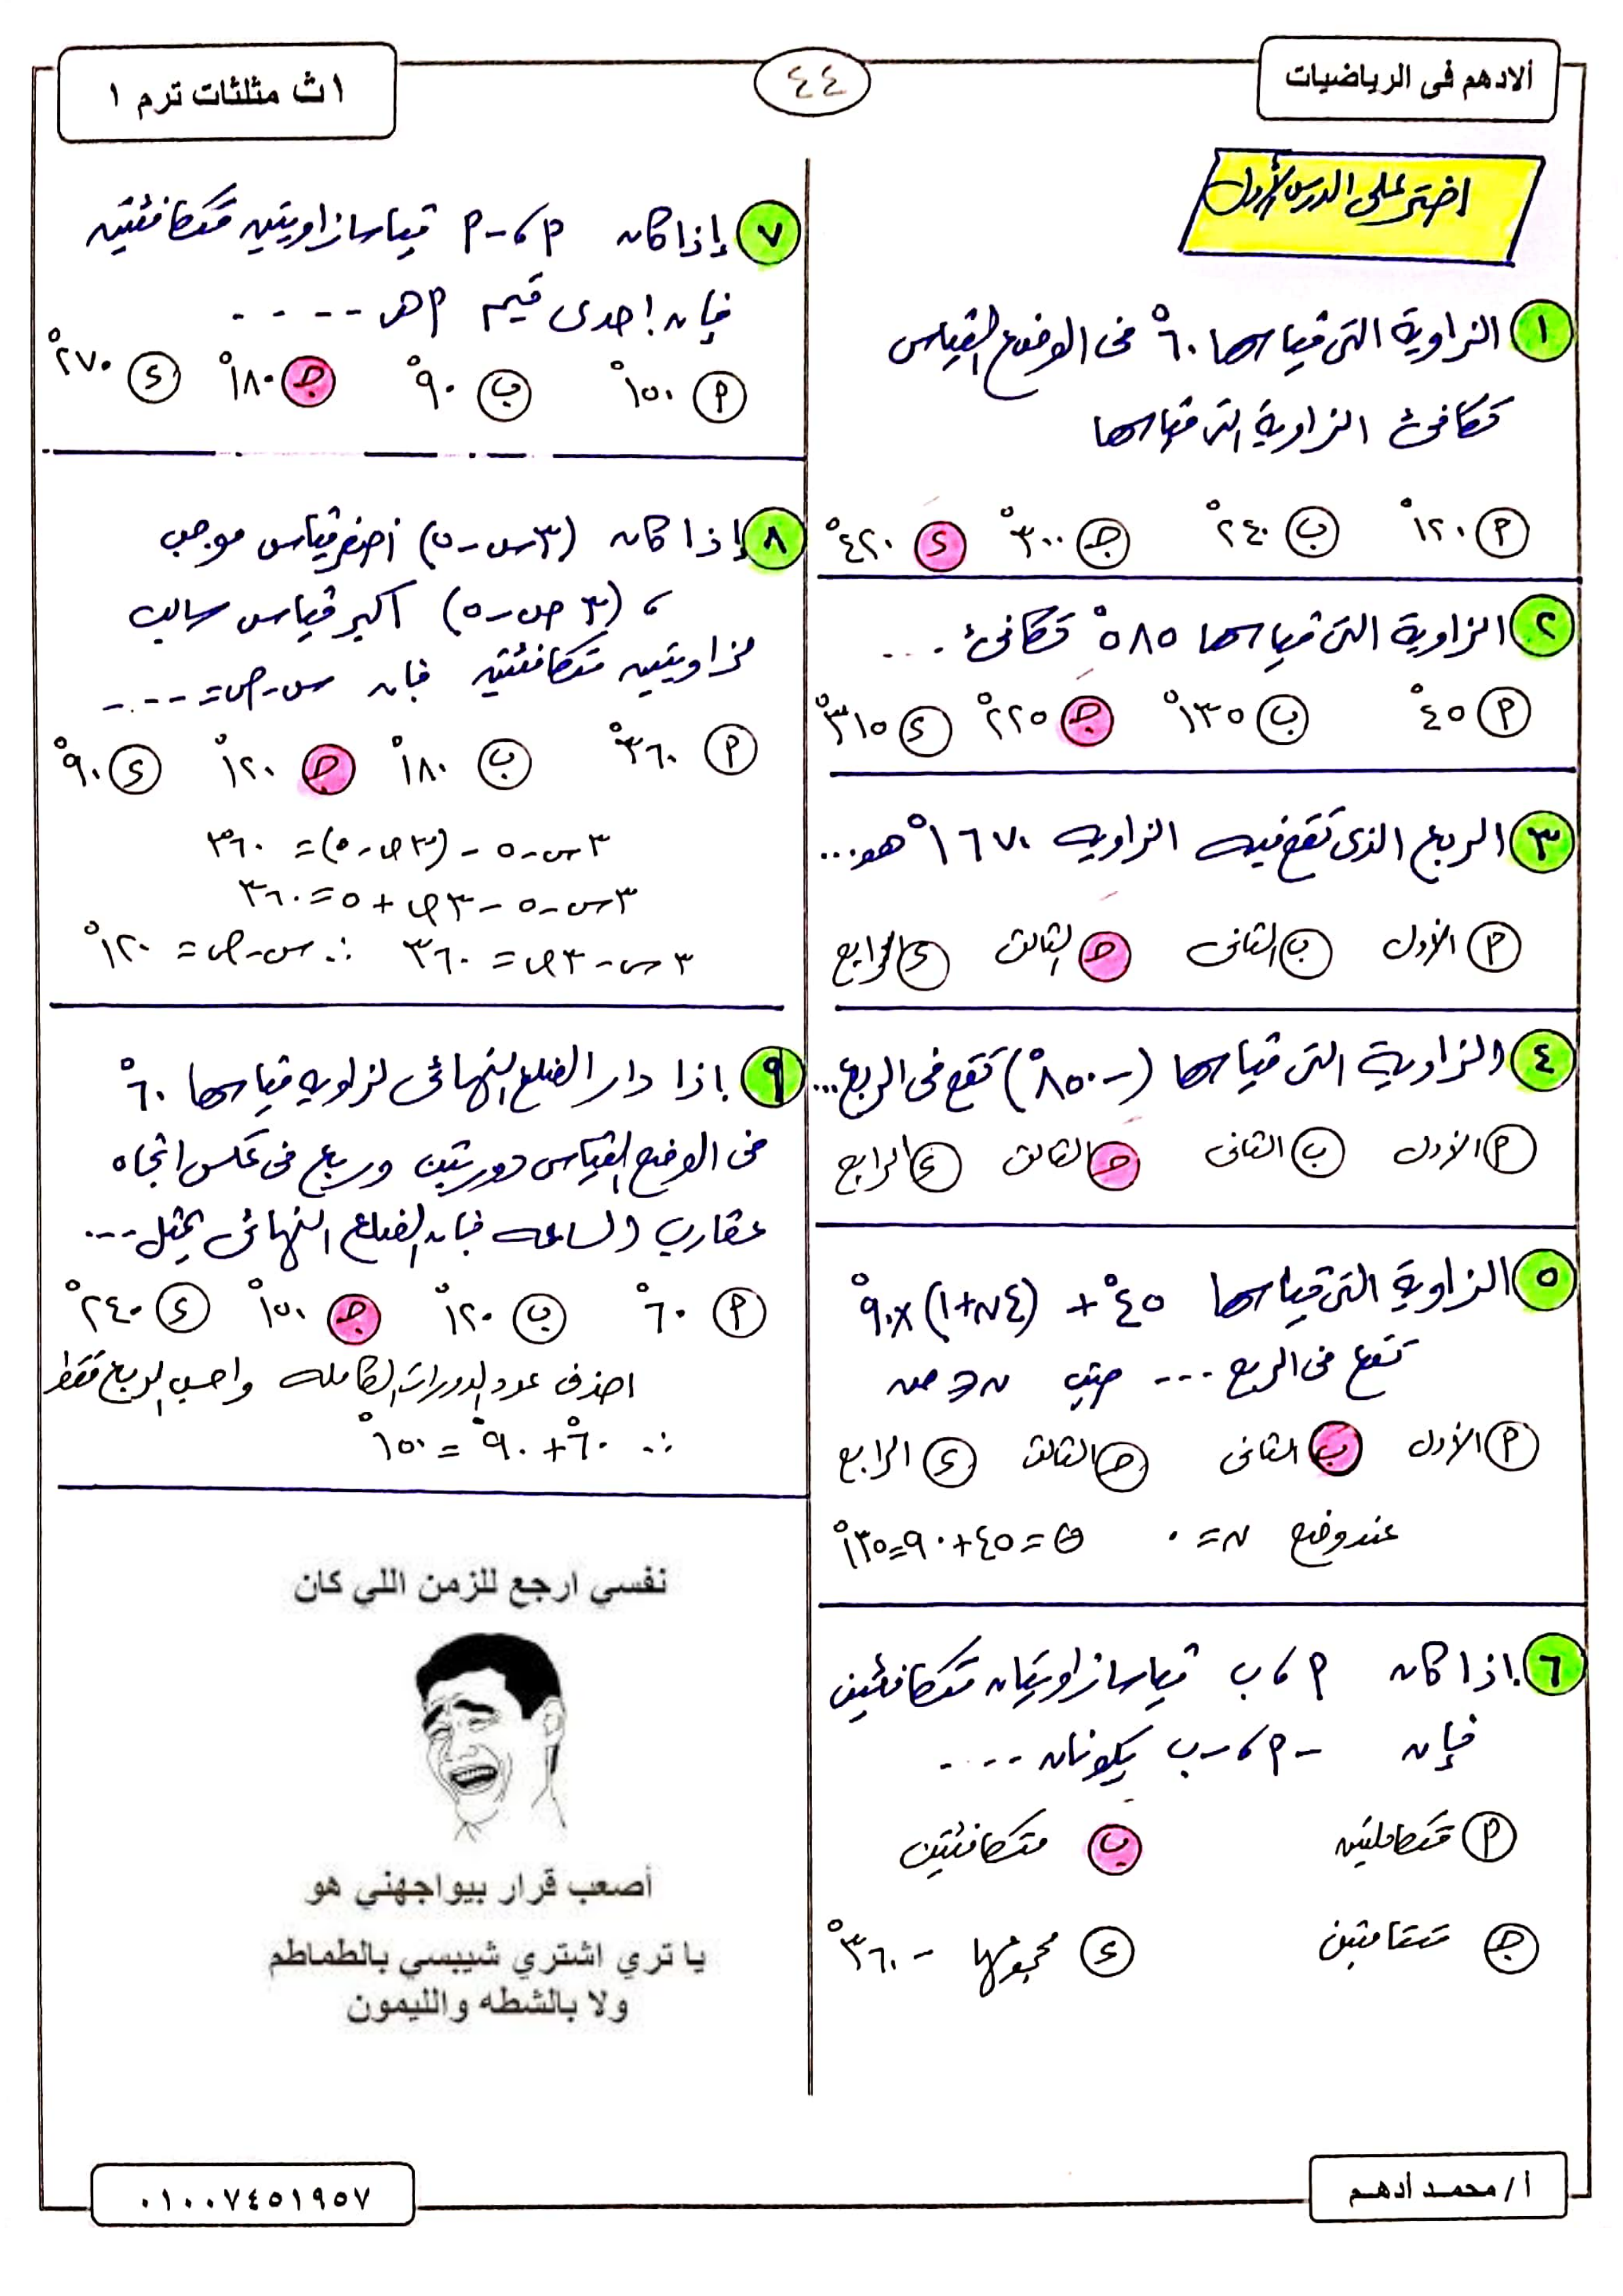 ألادهم فى الرياضيات
٤٤
١ ث مثلثات ترم ١
اختر على الدرس الأول
١ الزاوية التى قياسها ٦٠° فى الوضع القياسى
تكافئ الزاوية التى قياسها
م ١٢٠° ب ٢٤٠° جـ ٣٠٠° ء ٤٢٠°
٢ الزاوية التى قياسها ٥٨٥° تكافئ ...
م ٤٥° ب ١٣٥° جـ ٢٢٥° ء ٣١٥°
٣ الربع الذى تقع فيه الزاوية ١٦٧٠° هو...
م الأول ب الثانى جـ الثالث ء الرابع
٤ الزاوية التى قياسها (-٨٥٠°) تقع فى الربع...
م الأول ب الثانى جـ الثالث ء الرابع
٥ الزاوية التى قياسها ٤٥° + (٤ن+١)×٩٠°
تقع فى الربع .... حيث ن ∈ صـ
م الأول ب الثانى جـ الثالث ء الرابع
عند وضع ن = ٠ θ = ٤٥+٩٠=١٣٥°
٦ اذا كان م ، ب قياسا زاويتان متكافئتين
فإن -م ، -ب يكونان ....
م متكاملتين ب متكافئتين
جـ متتامتين ء مجموعهما - ٣٦٠°
٧ إذا كان م ، -م قياسا زاويتين متكافئتين
فإن إحدى قيم م هى ....
م ١٥٠° ب ٩٠° جـ ١٨٠° ء ٢٧٠°
٨ إذا كان (٣س-٥) أصغر قياس موجب
، (٣ص-٥) اكبر قياس سالب
لزاويتين متكافئتين فإن س-ص= ....
م ٣٦٠° ب ١٨٠° جـ ١٢٠° ء ٩٠°
٣س-٥-(٣ص-٥)= ٣٦٠
٣س-٥-٣ص+٥=٣٦٠
٣س-٣ص=٣٦٠ ∴ س-ص= ١٢٠°
٩ اذا دار الضلع النهائى لزاوية قياسها ٦٠°
فى الوضع القياسى دورتين وربع فى عكس اتجاه
عقارب الساعه فإن الضلع النهائى يمثل...
م ٦٠° ب ١٢٠° جـ ١٥٠° ء ٢٤٠°
احذف عدد الدورات الكامله واحسب الربع فقط
∴ ٦٠°+٩٠°=١٥٠°
نفسي ارجع للزمن اللي كان
أصعب قرار بيواجهني هو
يا تري اشتري شيبسي بالطماطم
ولا بالشطه والليمون
أ / محمد أدهم
٠١٠٠٧٤٥١٩٥٧